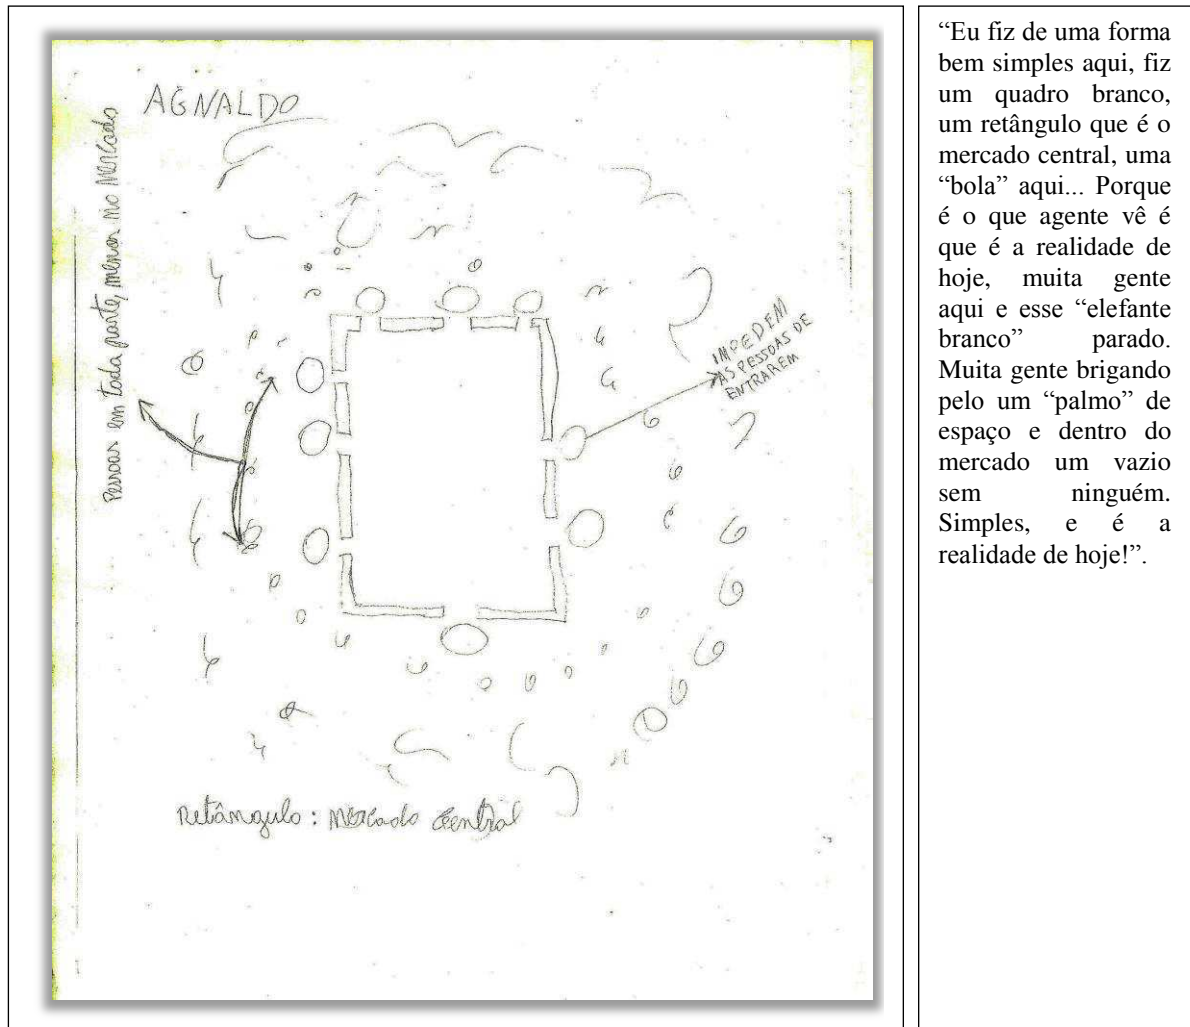 AGNALDO
Pessoas em toda parte, menos no Mercado
IMPEDEM
AS PESSOAS DE
ENTRAREM
Retângulo: Mercado Central
“Eu fiz de uma forma
bem simples aqui, fiz
um quadro branco,
um retângulo que é o
mercado central, uma
“bola” aqui... Porque
é o que agente vê é
que é a realidade de
hoje, muita gente
aqui e esse “elefante
branco” parado.
Muita gente brigando
pelo um “palmo” de
espaço e dentro do
mercado um vazio
sem ninguém.
Simples, e é a
realidade de hoje!”.